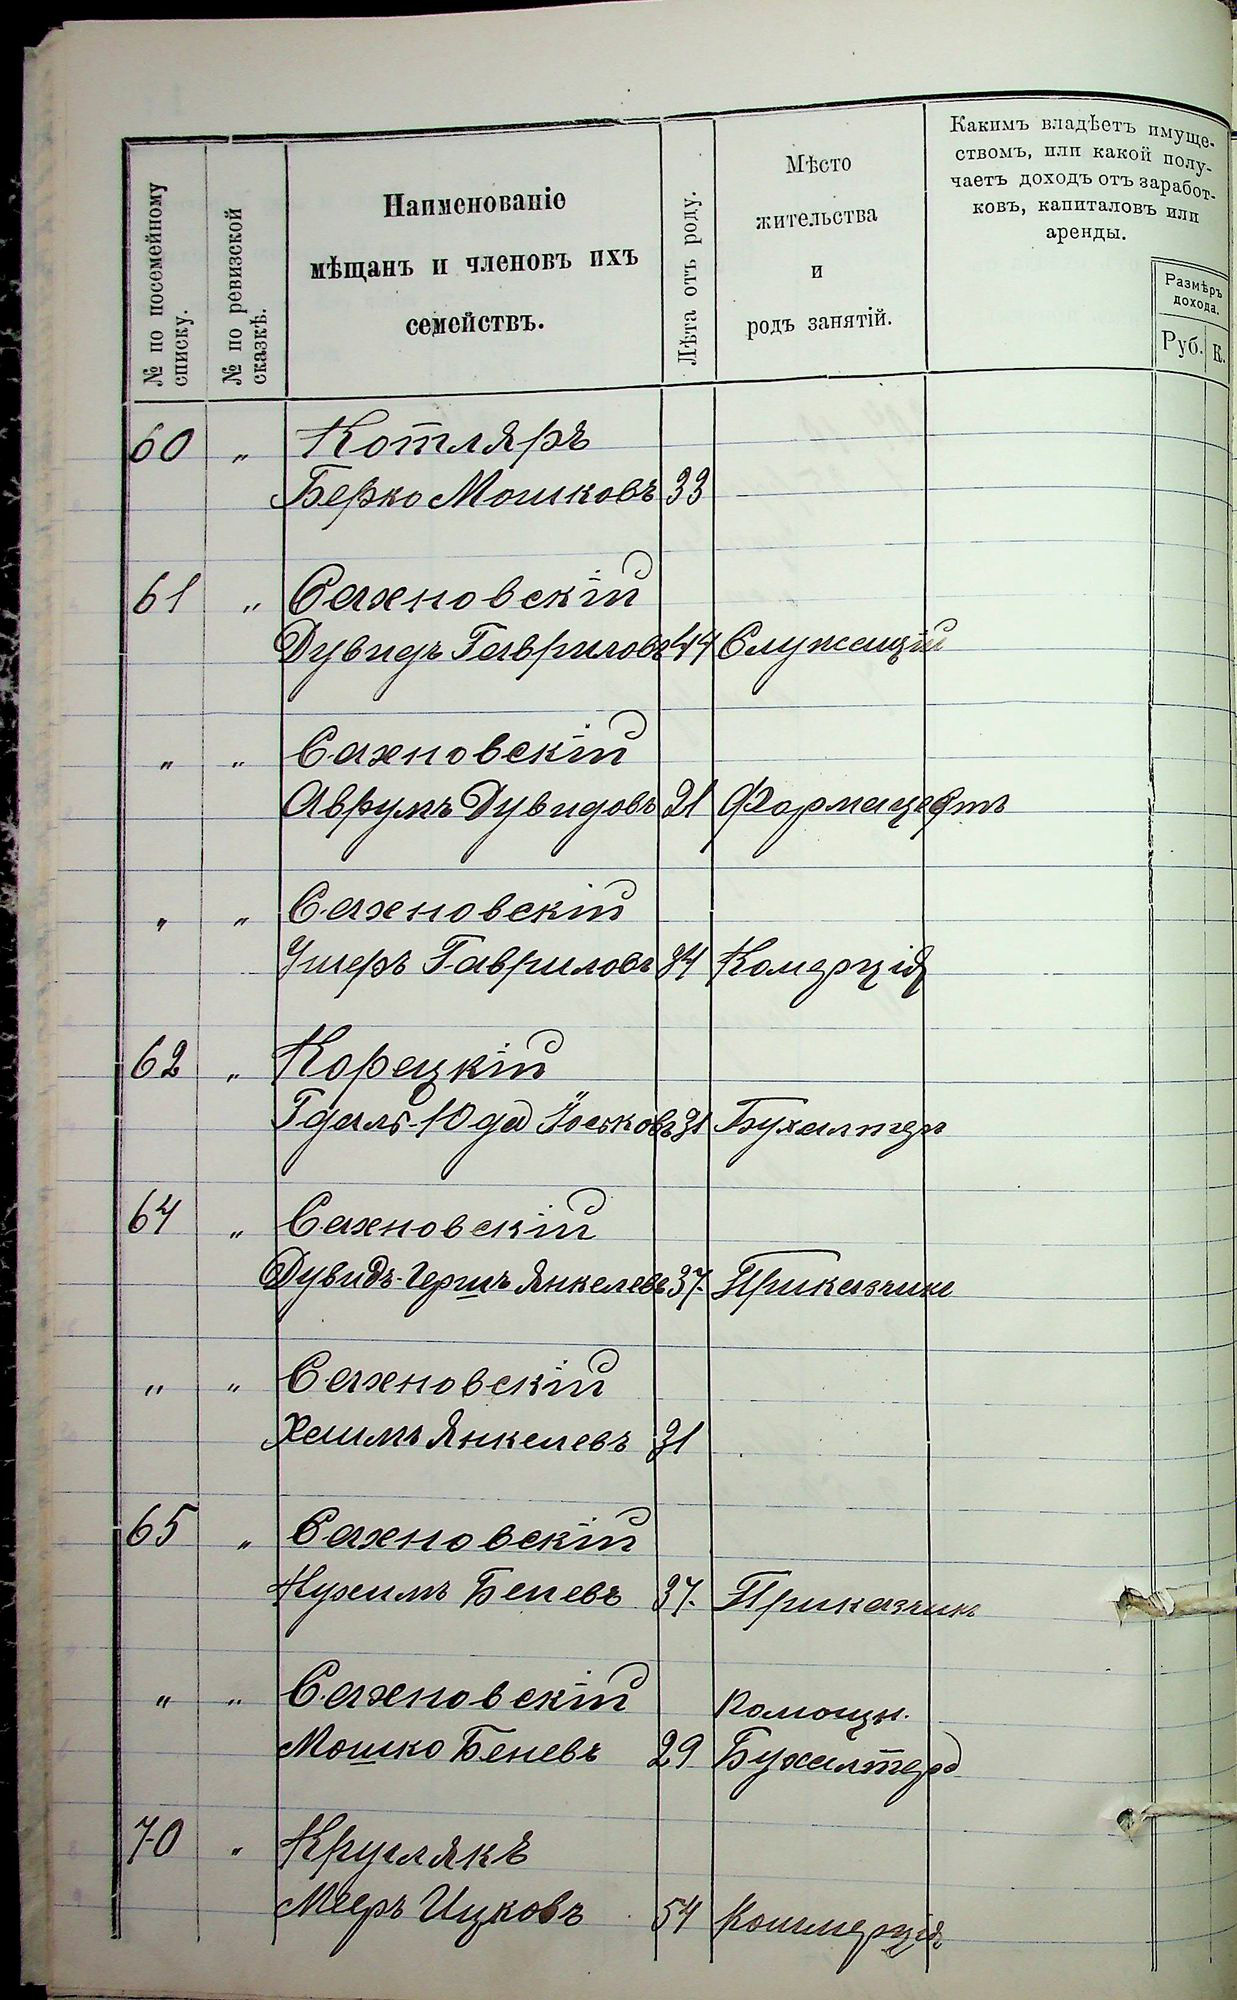 № по посемейному списку.
№ по ревизской сказкѣ.
Наименованіе
мѣщанъ и членовъ ихъ
семействъ.
Лѣта отъ роду.
Мѣсто
жительства
и
родъ занятій.
Какимъ владѣетъ имуще-
ствомъ, или какой полу-
чаетъ доходъ отъ заработ-
ковъ, капиталовъ или
аренды.
Размѣръ
дохода.
Руб. К.
60 „ Котляръ
Берко Мошковъ 33
61 „ Сахновскій
Дувидъ Гавриловъ 44 Служащій
„ „ Сахновскій
Аврумъ Дувидовъ 21 Формацефтъ
„ „ Сахновскій
Ушеръ Гавриловъ 34 Комерція
62 „ Корецкій
Гдаль-Юда Йоськовъ 31 Бухалтеръ
64 „ Сахновскій
Дувидъ-Гершъ Янкелевъ 37. Приказчикъ
„ „ Сахновскій
Хаимъ Янкелевъ 31
65 „ Сахновскій
Нухимъ Беневъ 37. Приказчикъ
„ „ Сахновскій помощн.
Мошко Беневъ 29 Бухалтера
70 „ Круглякъ
Мееръ Ицковъ 54 Коммерція